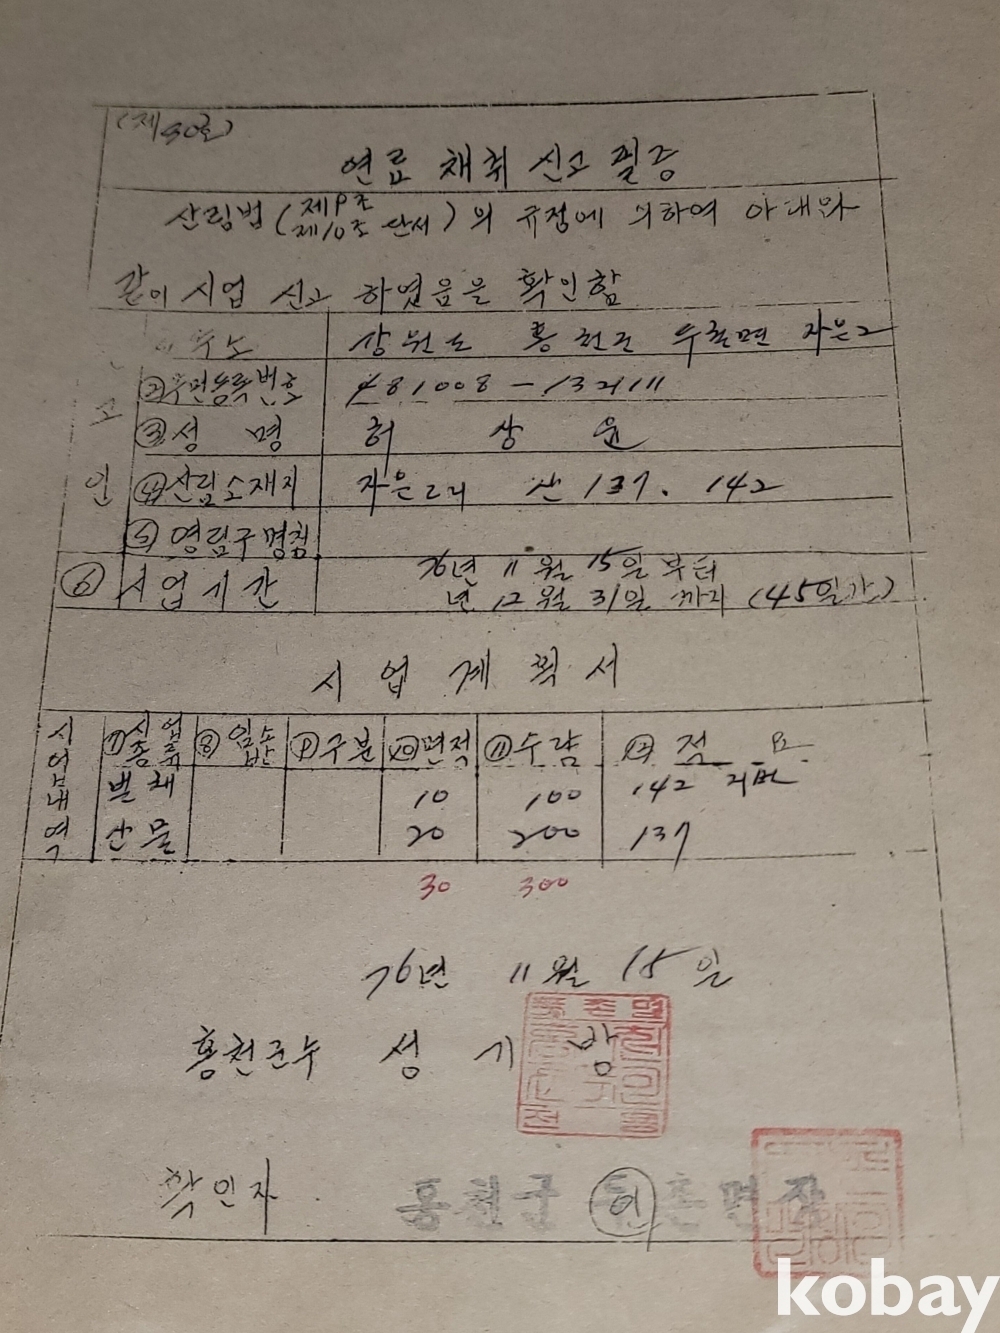 (제90호)
연료 채취 신고 필증
산림법 (제9조 제10조 단서) 의 규정에 의하여 아래와
같이 시업 신고 하였음을 확인함
주소 강원도 홍천군 두촌면 자은2
고
②주민등록번호 481008-1321111
③성 명 허 상 윤
인 ④산림소재지 자은2리 산 137. 142
⑤영림구명칭
⑥ 시업기간 76년 11월 15일 부터
년 12월 31일 까지 (45일간)
시 업 계 획 서
시업내역 ⑦시업종류 ⑧임소반 ⑨구분 ⑩면적 ⑪수량 ⑫적 요
벌채 10 100 142
산물 20 200 137
30 300
76년 11월 15일
홍천군수 성 기
확인자 홍천군 두촌면장
인
kobay